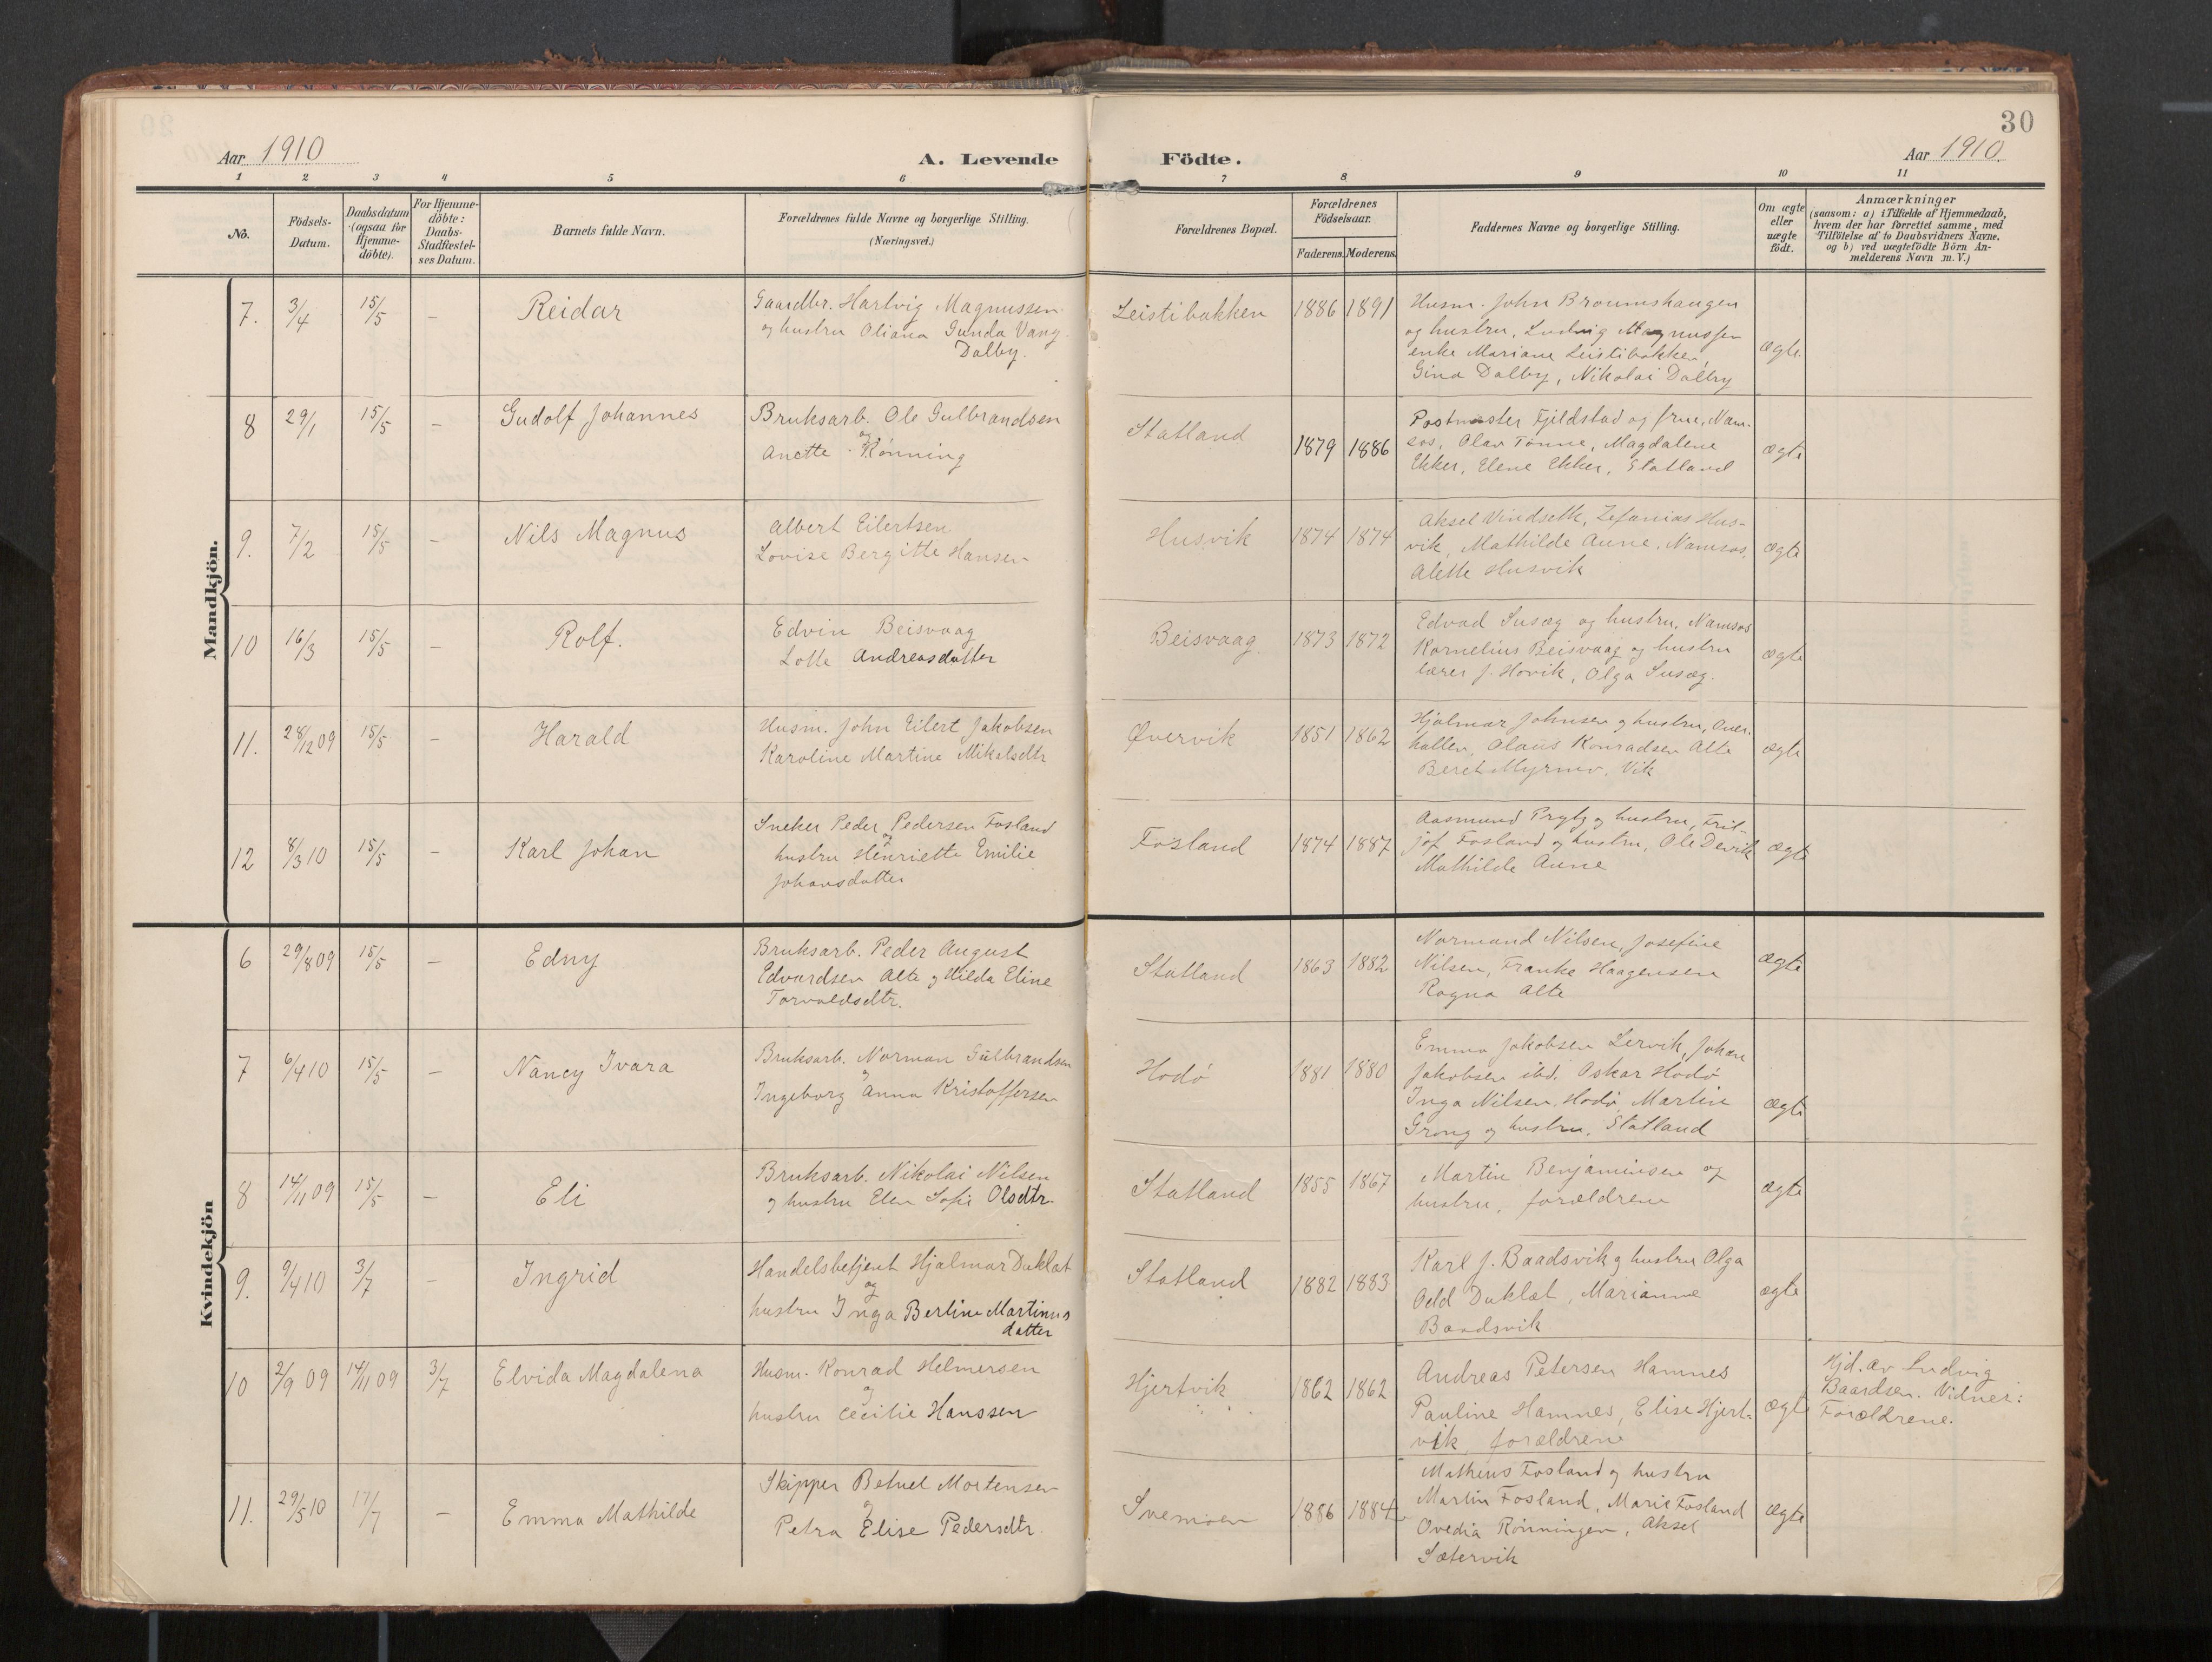 30
Aar 1910
A. Levende Födte.
Aar 1910.
1 2 3 4 5 6 7 8 9 10 11
No.
Födsels-
Datum.
Daabsdatum
(ogsaa for
Hjemme-
döbte).
For Hjemme-
döbte:
Daabs-
Stadfæstel-
ses Datum.
Barnets fulde Navn.
Forældrenes fulde Navne og borgerlige Stilling.
(Næringsvei.)
Forældrenes Bopæl.
Forældrenes
Födselsaar.
Faderens. Moderens.
Faddernes Navne og borgerlige Stilling.
Om ægte
eller
uægte
födt.
Anmærkninger
(saasom: a) i Tilfælde af Hjemmedaab,
hvem der har forrettet samme, med
Tilföielse af to Daabsvidners Navne,
og b) ved uægtefödte Börn An-
melderens Navn m. V.)
Mandkjön.
7. 3/4 15/5 - Reidar
Gaardbr. Hartvig Magnussen
og hustru Oliana Gunda Vang
Dalby.
Leistibakken 1886 1891
Husm. John Broumshaugen
og hustru, Ludvig Magnussen
enke Mariane Leistibakken,
Gina Dalby, Nikolai Dalby
ægte
8 29/1 15/5 - Gudolf Johannes
Bruksarb. Ole Gulbrandsen
og
Anette Rønning
Statland 1879 1886
Postmester Fjeldstad og frue, Nam-
sos, Olav Tønne, Magdalene
Ekker, Elene Ekker, Statland
ægte
9. 7/2 15/5 - Nils Magnus
Albert Eilertsen
Lovise Bergitte Hansen
Husvik 1874 1874
Aksel Vindseth, Zefanias Hus-
vik, Mathilde Aune, Namsos,
Alette Husvik
ægte
10 16/3 15/5 - Rolf.
Edvin Beisvaag
Lotte Andreasdatter
Beisvaag 1873 1872
Edvad Susæg og hustru, Namsos
Kornelius Beisvaag og hustru
lærer J. Hovik, Olga Susæg.
ægte
11. 28/12 09 15/5 - Harald
Husm. John Eilert Jakobsen
Karoline Martine Mikalsdtr
Øvervik 1851 1862
Hjalmar Johnsen og hustru, Over-
hallen, Olaus Konradsen Alte
Beret Myrmo, Vik
ægte
12 8/3 10 15/5 - Karl Johan
Sneker Peder Pedersen Fosland
og
hustru Henriette Emilie
Johansdatter
Fosland 1874 1887
Aasmund Prytz og hustru, Frit-
jof Fosland og hustru, Ole Devik
Mathilde Aune
ægte
Kvindekjön
6 29/8 09 15/5 - Edny
Bruksarb. Peder August
Edvardsen Alte og Hilda Eline
Torvaldsdtr.
Statland 1863 1882
Normand Nilsen, Josefine
Nilsen, Franke Haagensen
Ragna Alte
ægte
7 6/4 10 15/5 - Nancy Ivara
Bruksarb. Norman Gulbrandsen
og
Ingeborg Anna Kristoffersen
Hodø 1881 1880
Emma Jakobsen Lervik, Johan
Jakobsen ibd. Oskar Hodø
Inga Nilsen, Hodø, Martin
Grong og hustru, Statland
ægte
8 14/11 09 15/5 - Eli
Bruksarb. Nikolai Nilsen
og hustru Elen Sofie Olsdtr.
Statland 1855 1867
Martin Benjaminsen og
hustru, forældrene
ægte
9. 9/4 10 3/7 - Ingrid
Handelsbetjent Hjalmar Duklæt
og
hustru Inga Berline Martinus
datter
Statland 1882 1883
Karl J. Baadsvik og hustru Olga
Odd Duklæt, Marianne
Baadsvik
ægte
10 2/9 09 14/11 09 3/7 Elvida Magdalena
Husm. Konrad Helmersen
og
hustru Cecilie Hanssen
Hjertvik 1862 1862
Andreas Petersen Hamnes
Pauline Hamnes, Elise Hjert-
vik, forældrene
ægte
Hjd. av Ludvig
Baardsen. Vidner:
Forældrene.
11. 29/5 10 17/7 - Emma Mathilde
Skipper Betuel Mortensen
og
Petra Elise Pedersdtr.
Svemoen 1886 1884
Matheus Fosland og hustru
Martin Fosland, Marie Fosland
Ovedia Rønningen, Aksel
Sætervik
ægte